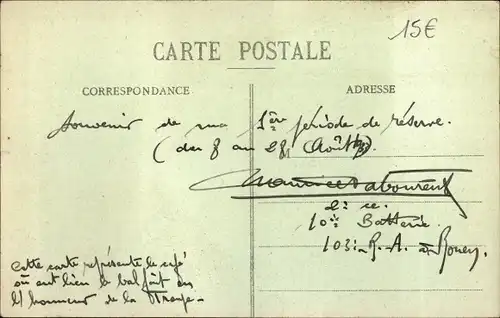 15€
CARTE POSTALE
CORRESPONDANCE
ADRESSE
Souvenir de ma 1ère période de réserve.
(du 8 au 28 Août
Maurice
2è cc.
10è Batterie
103è R. A. à Rouen
Cette carte représente le café
où eut lieu le bal fait en
l'honneur de la